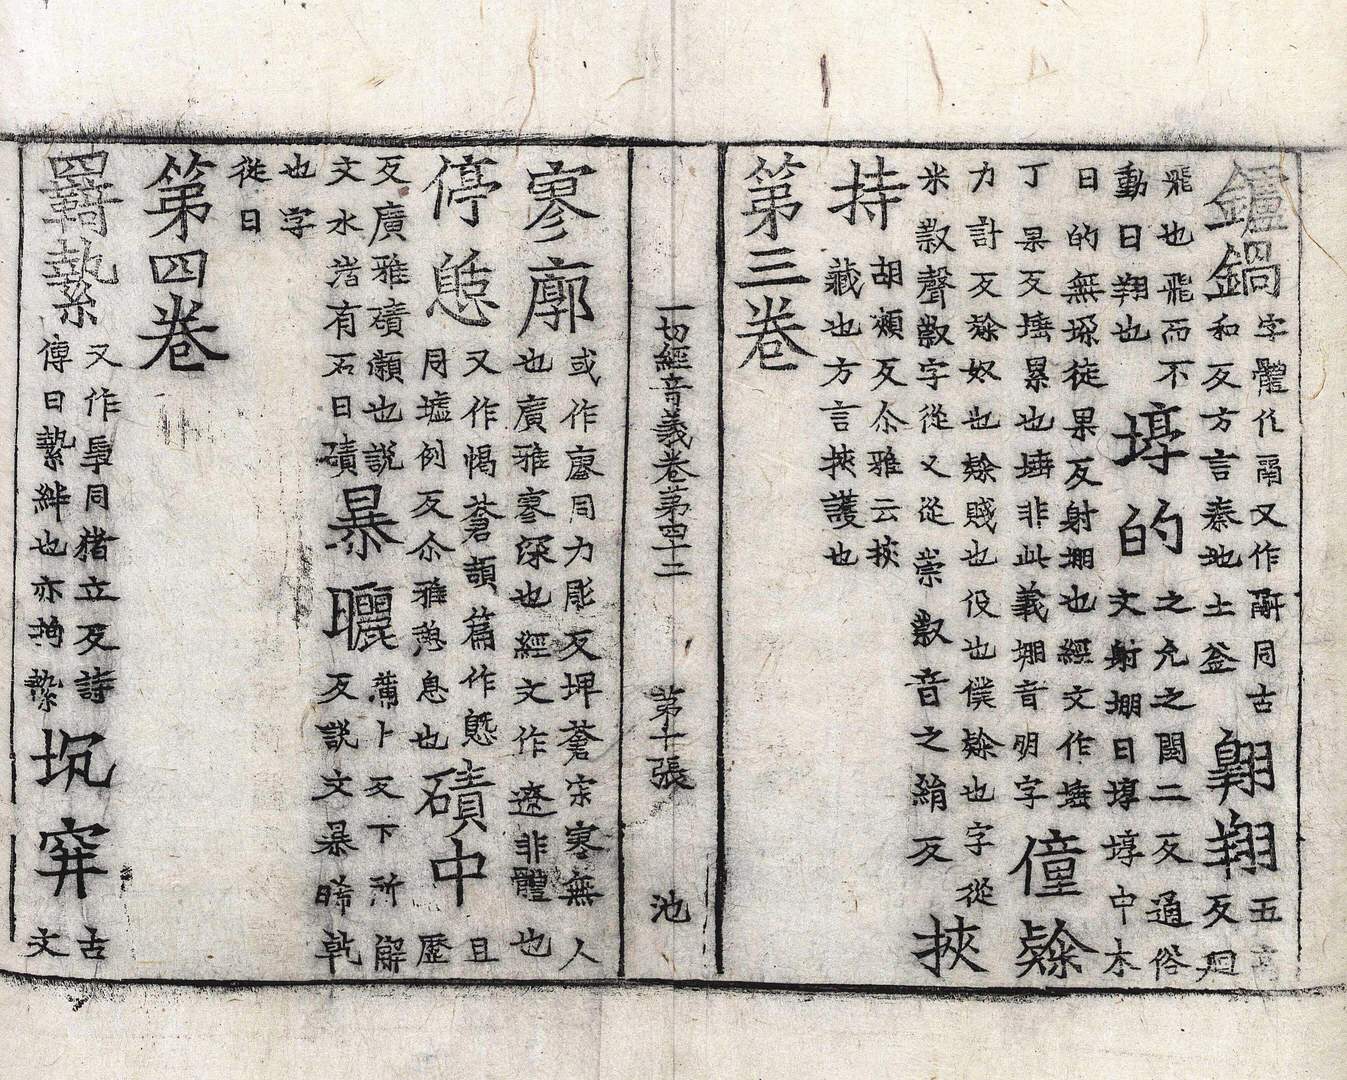 鑪鍋字體作鬲又作𩰲同古和反方言秦地土釜翱翔五高反廻
飛也飛而不動曰翔也埻的之允之閏二反通俗文射堋曰埻埻中木
曰的無垜徒果反射堋也經文作埵丁果反埵累也埵非此義堋音朋字僮𨽻
力計反𨽻奴也𨽻賤也役也僕𨽻也字從米㕢聲㕢字從又從祟㕢音之絹反挾
持胡頰反尒雅云挾藏也方言挾護也
第三卷
一切經音義卷第四十二 第十張 池
寥廓或作廫同力彫反埤蒼寂寥無人也廣雅寥深也經文作遼非體也
停憩又作愒蒼頡篇作㥷同墟例反尒雅憩息也磧中且歷
反廣雅磧瀨也說文水渚有石曰磧暴曬蒲卜反下所懈反說文暴晞乹
也字從日
第四卷
羇縶又作馽同猪立反詩傳曰縶絆也亦拘縶坑穽古文